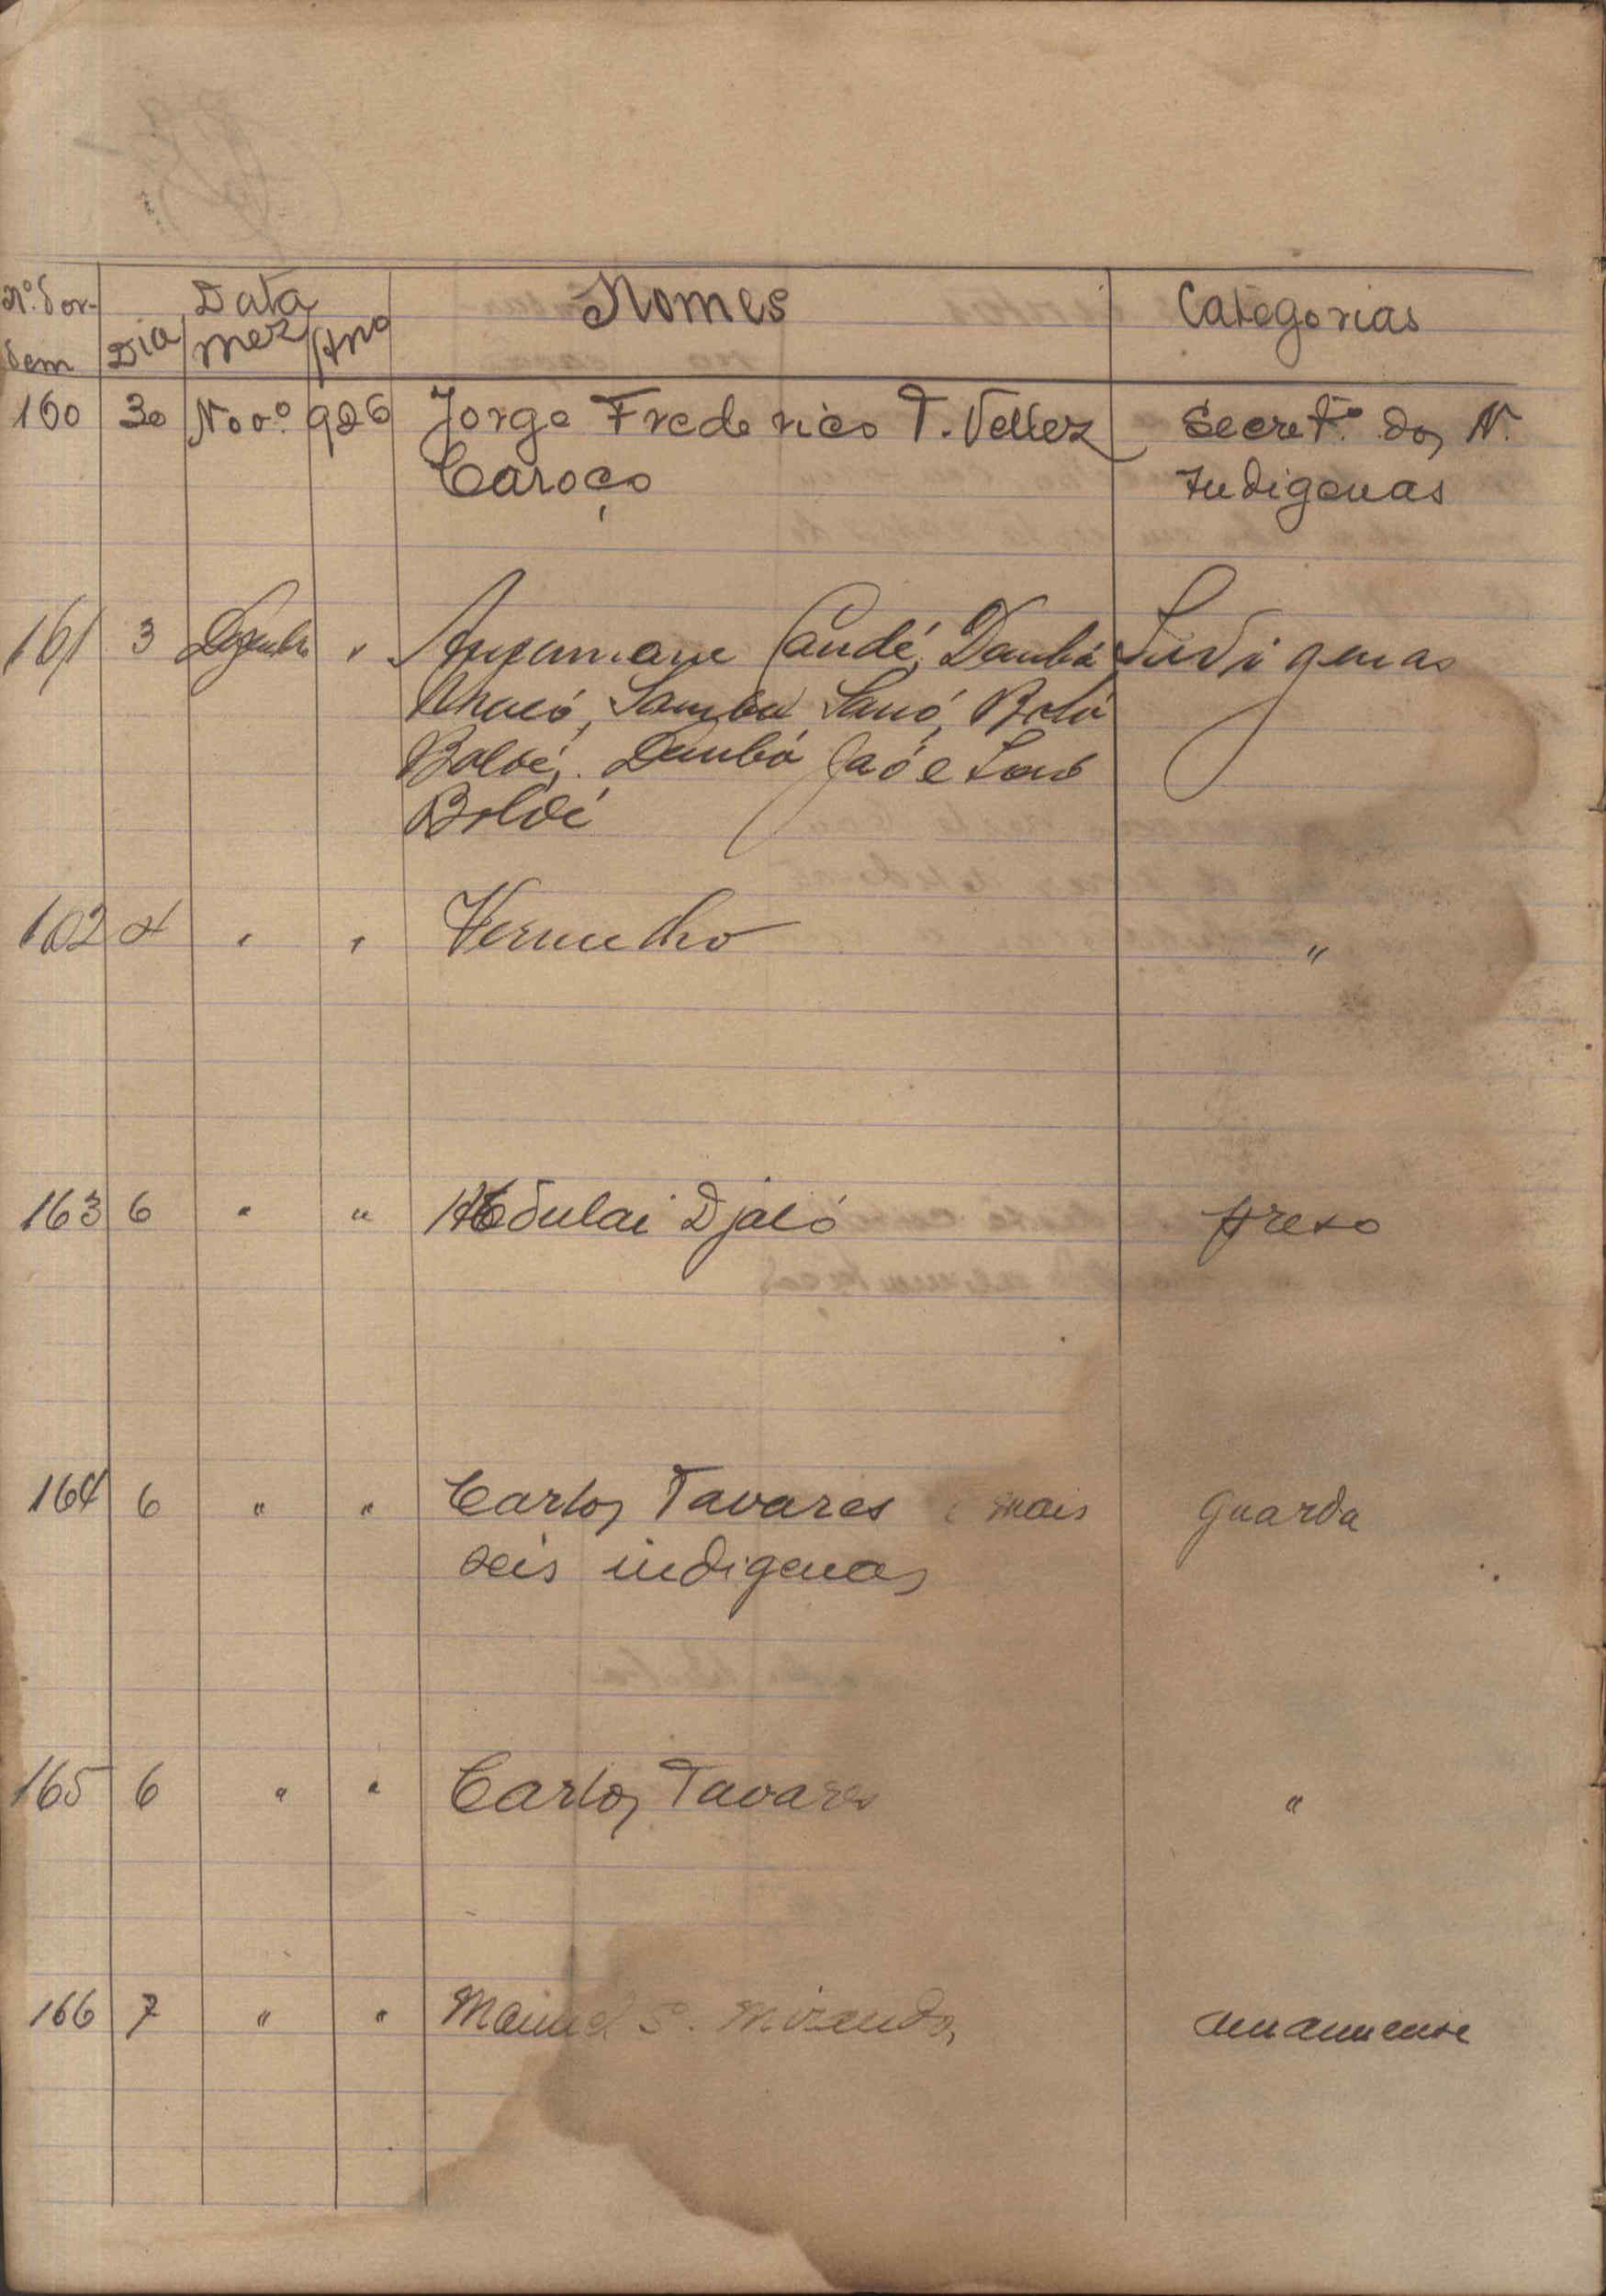 Nº. d'or- Data Nomes Categorias
dem Dia mez Ano
160 30 Novº. 926 Jorge Frederico T. Vellez Secretº dos N.
Caroço Indigenas
161 3 Dezembro " Candé, Dambá Indigenas
Samba Sanó, Boló
Baldé, Dembá Jaó e
Baldé
162 4 " " Vermelho "
163 6 " " Abdulai Djaló preso
164 6 " " Carlos Tavares e mais Guarda
seis indigenas
165 6 " " Carlos Tavares "
166 7 " " Manuel S. Miranda, amanuense